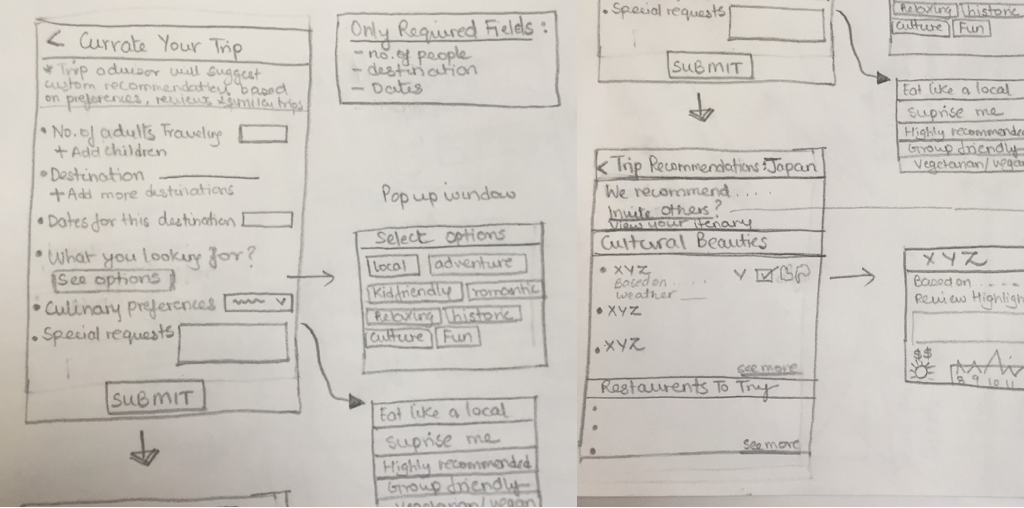 < Currate Your Trip
* Trip advisor will suggest
custom recommendations based
on preferences, reviews & similar trips
• No. of adults Traveling
+ Add children
• Destination
+ Add more destinations
• Dates for this destination
• What you looking for?
See options
• Culinary preferences
• Special requests
SUBMIT
Only Required Fields:
- no. of people
- destination
- Dates
Pop up window
Select options
local adventure
Kidfriendly romantic
Relaxing historic
culture Fun
Eat like a local
Suprise me
Highly recommended
Group friendly
Vegetarian/vegan
• Special requests
SUBMIT
Relaxing historic
culture Fun
Eat like a local
Suprise me
Highly recommended
Group friendly
Vegetarian/vegan
< Trip Recommendations: Japan
We recommend ....
Invite others?
View your itenary
Cultural Beauties
• XYZ
Based on ....
weather
• XYZ
• XYZ
see more
Restaurents To Try
see more
XYZ
Based on ....
Review Highligh
$$
8 9 10 11